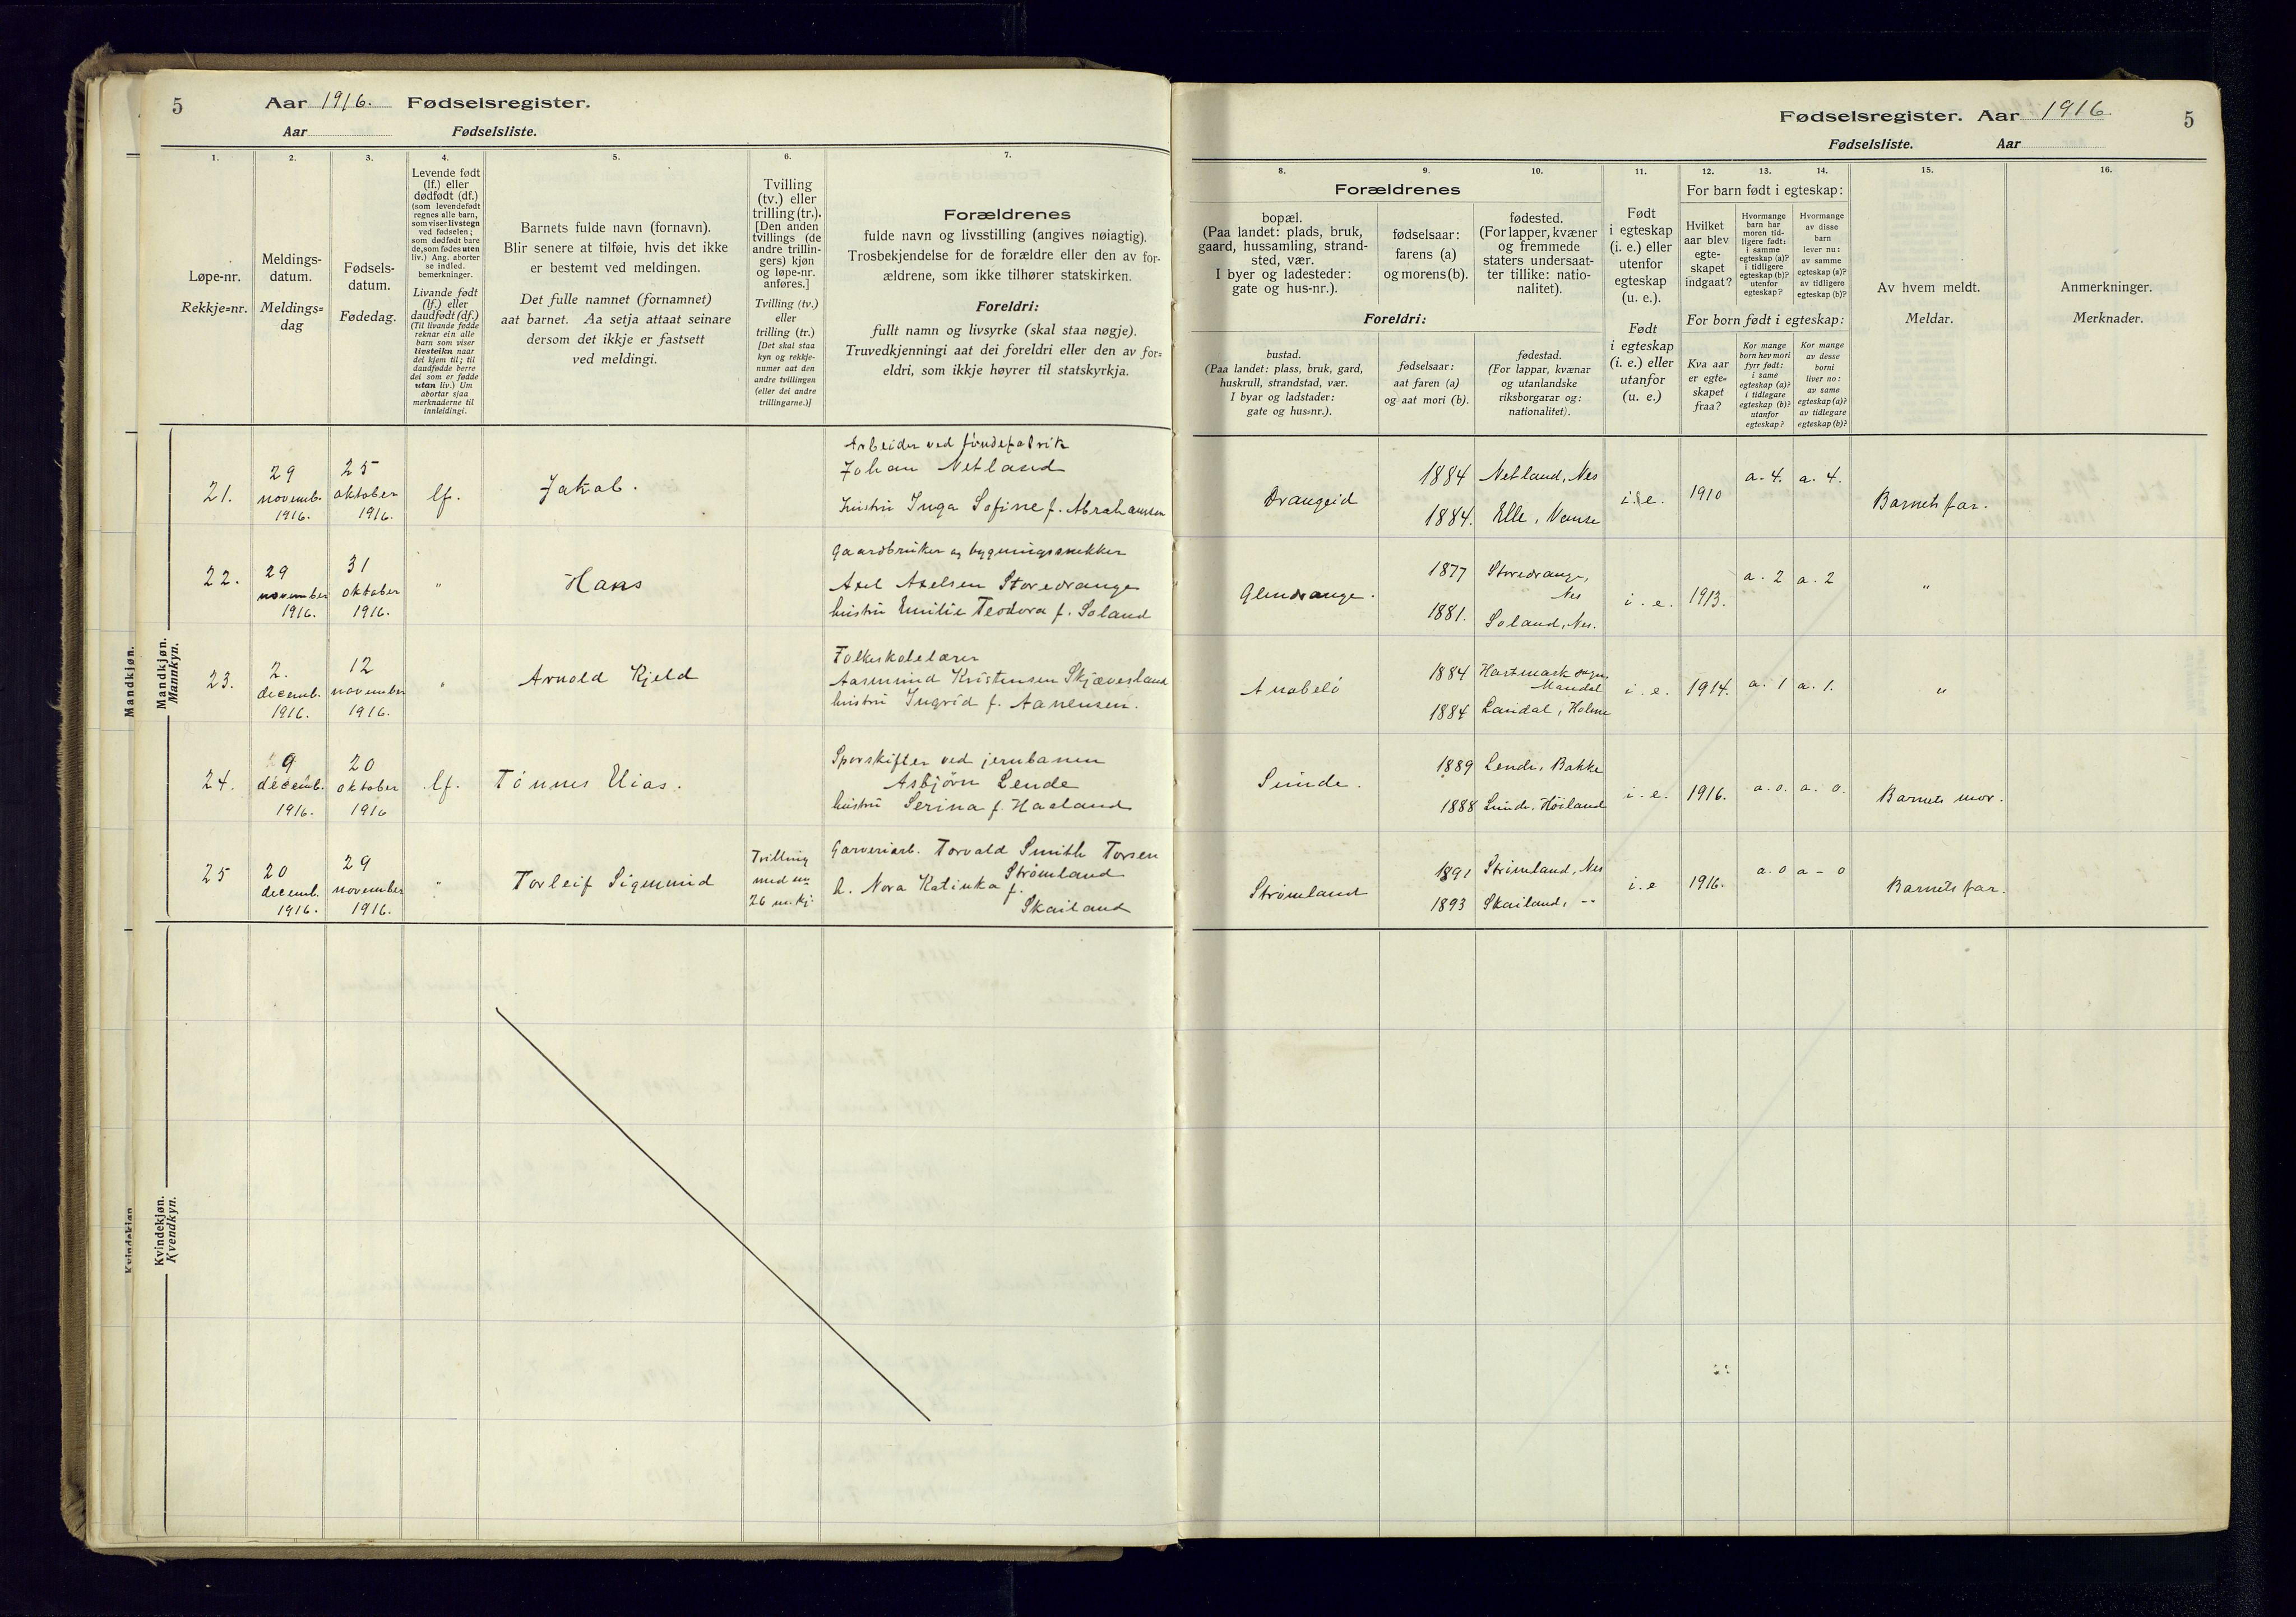 5
Aar 1916. Fødselsregister.
Aar Fødselsliste.
1.
2.
3.
4.
5.
6.
7.
Løpe-nr.
Rekkje=nr.
Meldings-
datum.
Meldings=
dag
Fødsels-
datum.
Fødedag.
Levende født
(lf.) eller
dødfødt (df.)
(som levendefødt
regnes alle barn,
som viser livstegn
ved fødselen;
som dødfødt bare
de, som fødes uten
liv.) Ang. aborter
se indled.
bemerkninger.
Livande født
(lf.) eller
daudfødt (df.)
(Til livande fødde
reknar ein alle
barn som viser
livsteikn naar
dei kjem til; til
daudfødde berre
dei som er fødde
utan liv.) Um
abortar sjaa
merknaderne til
innleidingi.
Barnets fulde navn (fornavn).
Blir senere at tilføie, hvis det ikke
er bestemt ved meldingen.
Det fulle namnet (fornamnet)
aat barnet. Aa setja attaat seinare
dersom det ikkje er fastsett
ved meldingi.
Tvilling
(tv.) eller
trilling (tr.).
[Den anden
tvillings (de
andre trillin-
gers) kjøn
og løpe-nr.
anføres.]
Tvilling (tv.)
eller
trilling (tr.)
[Det skal staa
kyn og rekkje-
numer aat den
andre tvillingen
(eller dei andre
trillingarne.)]
Forældrenes
fulde navn og livsstilling (angives nøiagtig).
Trosbekjendelse for de forældre eller den av for-
ældrene, som ikke tilhører statskirken.
Foreldri:
fullt namn og livsyrke (skal staa nøgje).
Truvedkjenningi aat dei foreldri eller den av for=
eldri, som ikkje høyrer til statskyrkja.
Mandkjøn.
Mandkjøn.
Mannkyn.
21.
29
novemb.
1916.
25
oktober
1916.
lf.
Jakob.
Arbeider ved
Johan Netland
hustru Inga Sofine f. Abrahamsen
22.
29
november
1916.
31
oktober
1916.
"
Hans
Gaardbruker og bygningssnekker
Axel Axelsen Storedrange
hustru Emilie Teodora f. Soland
23.
2.
decemb.
1916.
12
november
1916.
"
Arnold Kjeld
Folkeskolelærer
Aasmund Kristensen Skjævesland
hustru Ingrid f. Aanensen.
24.
9
decemb.
1916.
20
oktober
1916
lf.
Tønnes Elias.
Sporskifter ved jernbanen
Asbjørn Lende
hustru Serina f. Haaland
25
20
decemb.
1916.
29
november
1916.
"
Torleif Sigmund
Tvilling
med nr.
26 m.kj.
Garveriarb. Torvald Smith Torsen
Strømland
h. Nora Katinka f.
Skailand
Kvindekjøn
Kvindekjøn.
Kvendkyn.
Fødselsregister. Aar 1916
5
Fødselsliste. Aar
8.
9.
10.
11.
12.
13.
14.
15.
16.
Forældrenes
bopæl.
(Paa landet: plads, bruk,
gaard, hussamling, strand-
sted, vær.
I byer og ladesteder:
gate og hus-nr.).
fødselsaar:
farens (a)
og morens (b).
fødested.
(For lapper, kvæner
og fremmede
staters undersaat-
ter tillike: natio-
nalitet).
Foreldri:
bustad.
(Paa landet: plass, bruk, gard,
huskrull, strandstad, vær.
I byar og ladstader:
gate og hus=nr.).
fødselsaar:
aat faren (a)
og aat mori (b).
fødestad.
(For lappar, kvænar
og utanlandske
riksborgarar og:
nationalitet).
Født
i egteskap
(i. e.) eller
utenfor
egteskap
(u. e.).
Født
i egteskap
(i. e.) eller
utanfor
(u. e.)
For barn født i egteskap:
Hvilket
aar blev
egte-
skapet
indgaat?
Hvormange
barn har
moren tid-
ligere født:
i samme
egteskap (a)?
i tidligere
egteskap (b)?
utenfor
egteskap?
Hvormange
av disse
barn
lever nu:
av samme
egteskap (a)?
av tidligere
egteskap (b)?
For born født i egteskap:
Kva aar
er egte=
skapet
fraa?
Kor mange
born hev mori
fyrr født:
i same
egteskap (a)?
i tidlegare
egteskap (b)?
utanfor
egteskap?
Kor mange
av desse
borni
liver no:
av same
egteskap (a)?
av tidlegare
egteskap (b)?
Av hvem meldt.
Meldar.
Anmerkninger.
Merknader.
Drangeid
1884
1884.
Netland, Nes
Elle, Vanse
i. e.
1910
a. 4.
a. 4.
Barnets far.
Glendrange.
1877
1881.
Storedrange,
Nes
Soland, Nes.
i. e.
1913.
a. 2
a. 2
"
Anabelø
1884
1884
Hartmark sogn,
Mandal
Landal, Holme
i. e.
1914.
a. 1
a. 1.
"
Sunde.
1889
1888
Lende, Bakke
Sunde, Høiland
i. e.
1916.
a. 0.
a. 0.
Barnets mor.
Strømland
1891
1893
Strømland, Nes
Skailand, -"-
i. e
1916.
a. 0
a - 0
Barnets far.